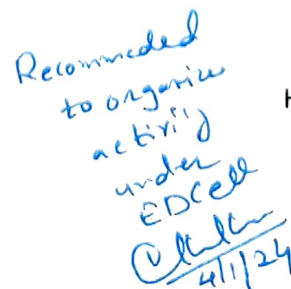 Recommeded
to organise
activity
under
EDCell
4/1/24